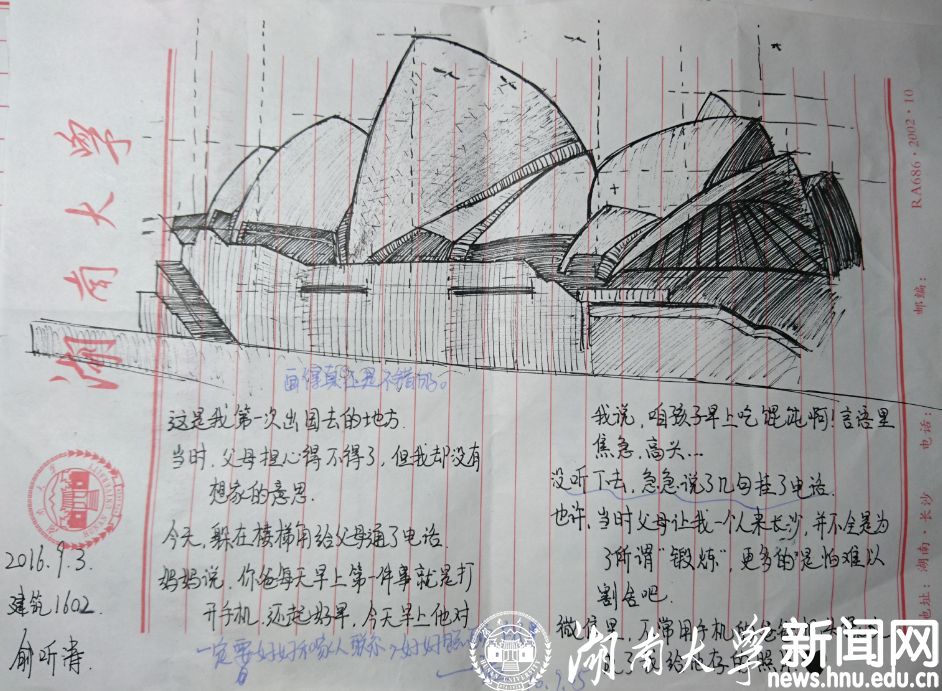 湖南大学
RA686·2002·10
邮编:
电话:
地址: 湖南·长沙
画得真还是不错的。
这是我第一次出国去的地方.
当时,父母担心得不得了,但我却没有
想家的意思.
今天,躲在楼梯间给父母通了电话.
妈妈说,你爸每天早上第一件事就是打
开手机.还起好早,今天早上他对
我说,咱孩子早上吃馄饨啊!言语里
焦急,高兴...
没听下去,急急说了几句挂了电话.
也许,当时父母让我一个人来长沙,并不全是为
了所谓"锻炼",更多的是怕难以
割舍吧.
微信里,不常用手机的
了我给他存的照片
2016.9.3.
建筑1602.
俞听涛.
一定要好好和家人聊
湖南大学新闻网
news.hnu.edu.cn